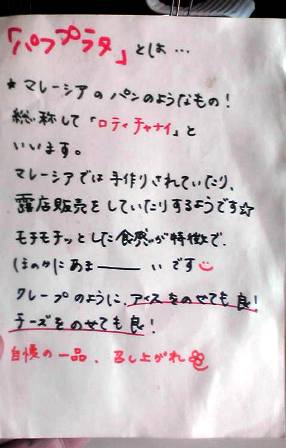 「パフプラタ」とは…
★マレーシアのパンのようなもの！
総称して「ロティチャナイ」と
いいます。
マレーシアでは手作りされていたり、
露店販売をしていたりするようです☆
モチモチッとした食感が特徴で、
ほのかにあま――いです
クレープのように、アイスをのせても良！
チーズをのせても良！
自慢の一品、召し上がれ